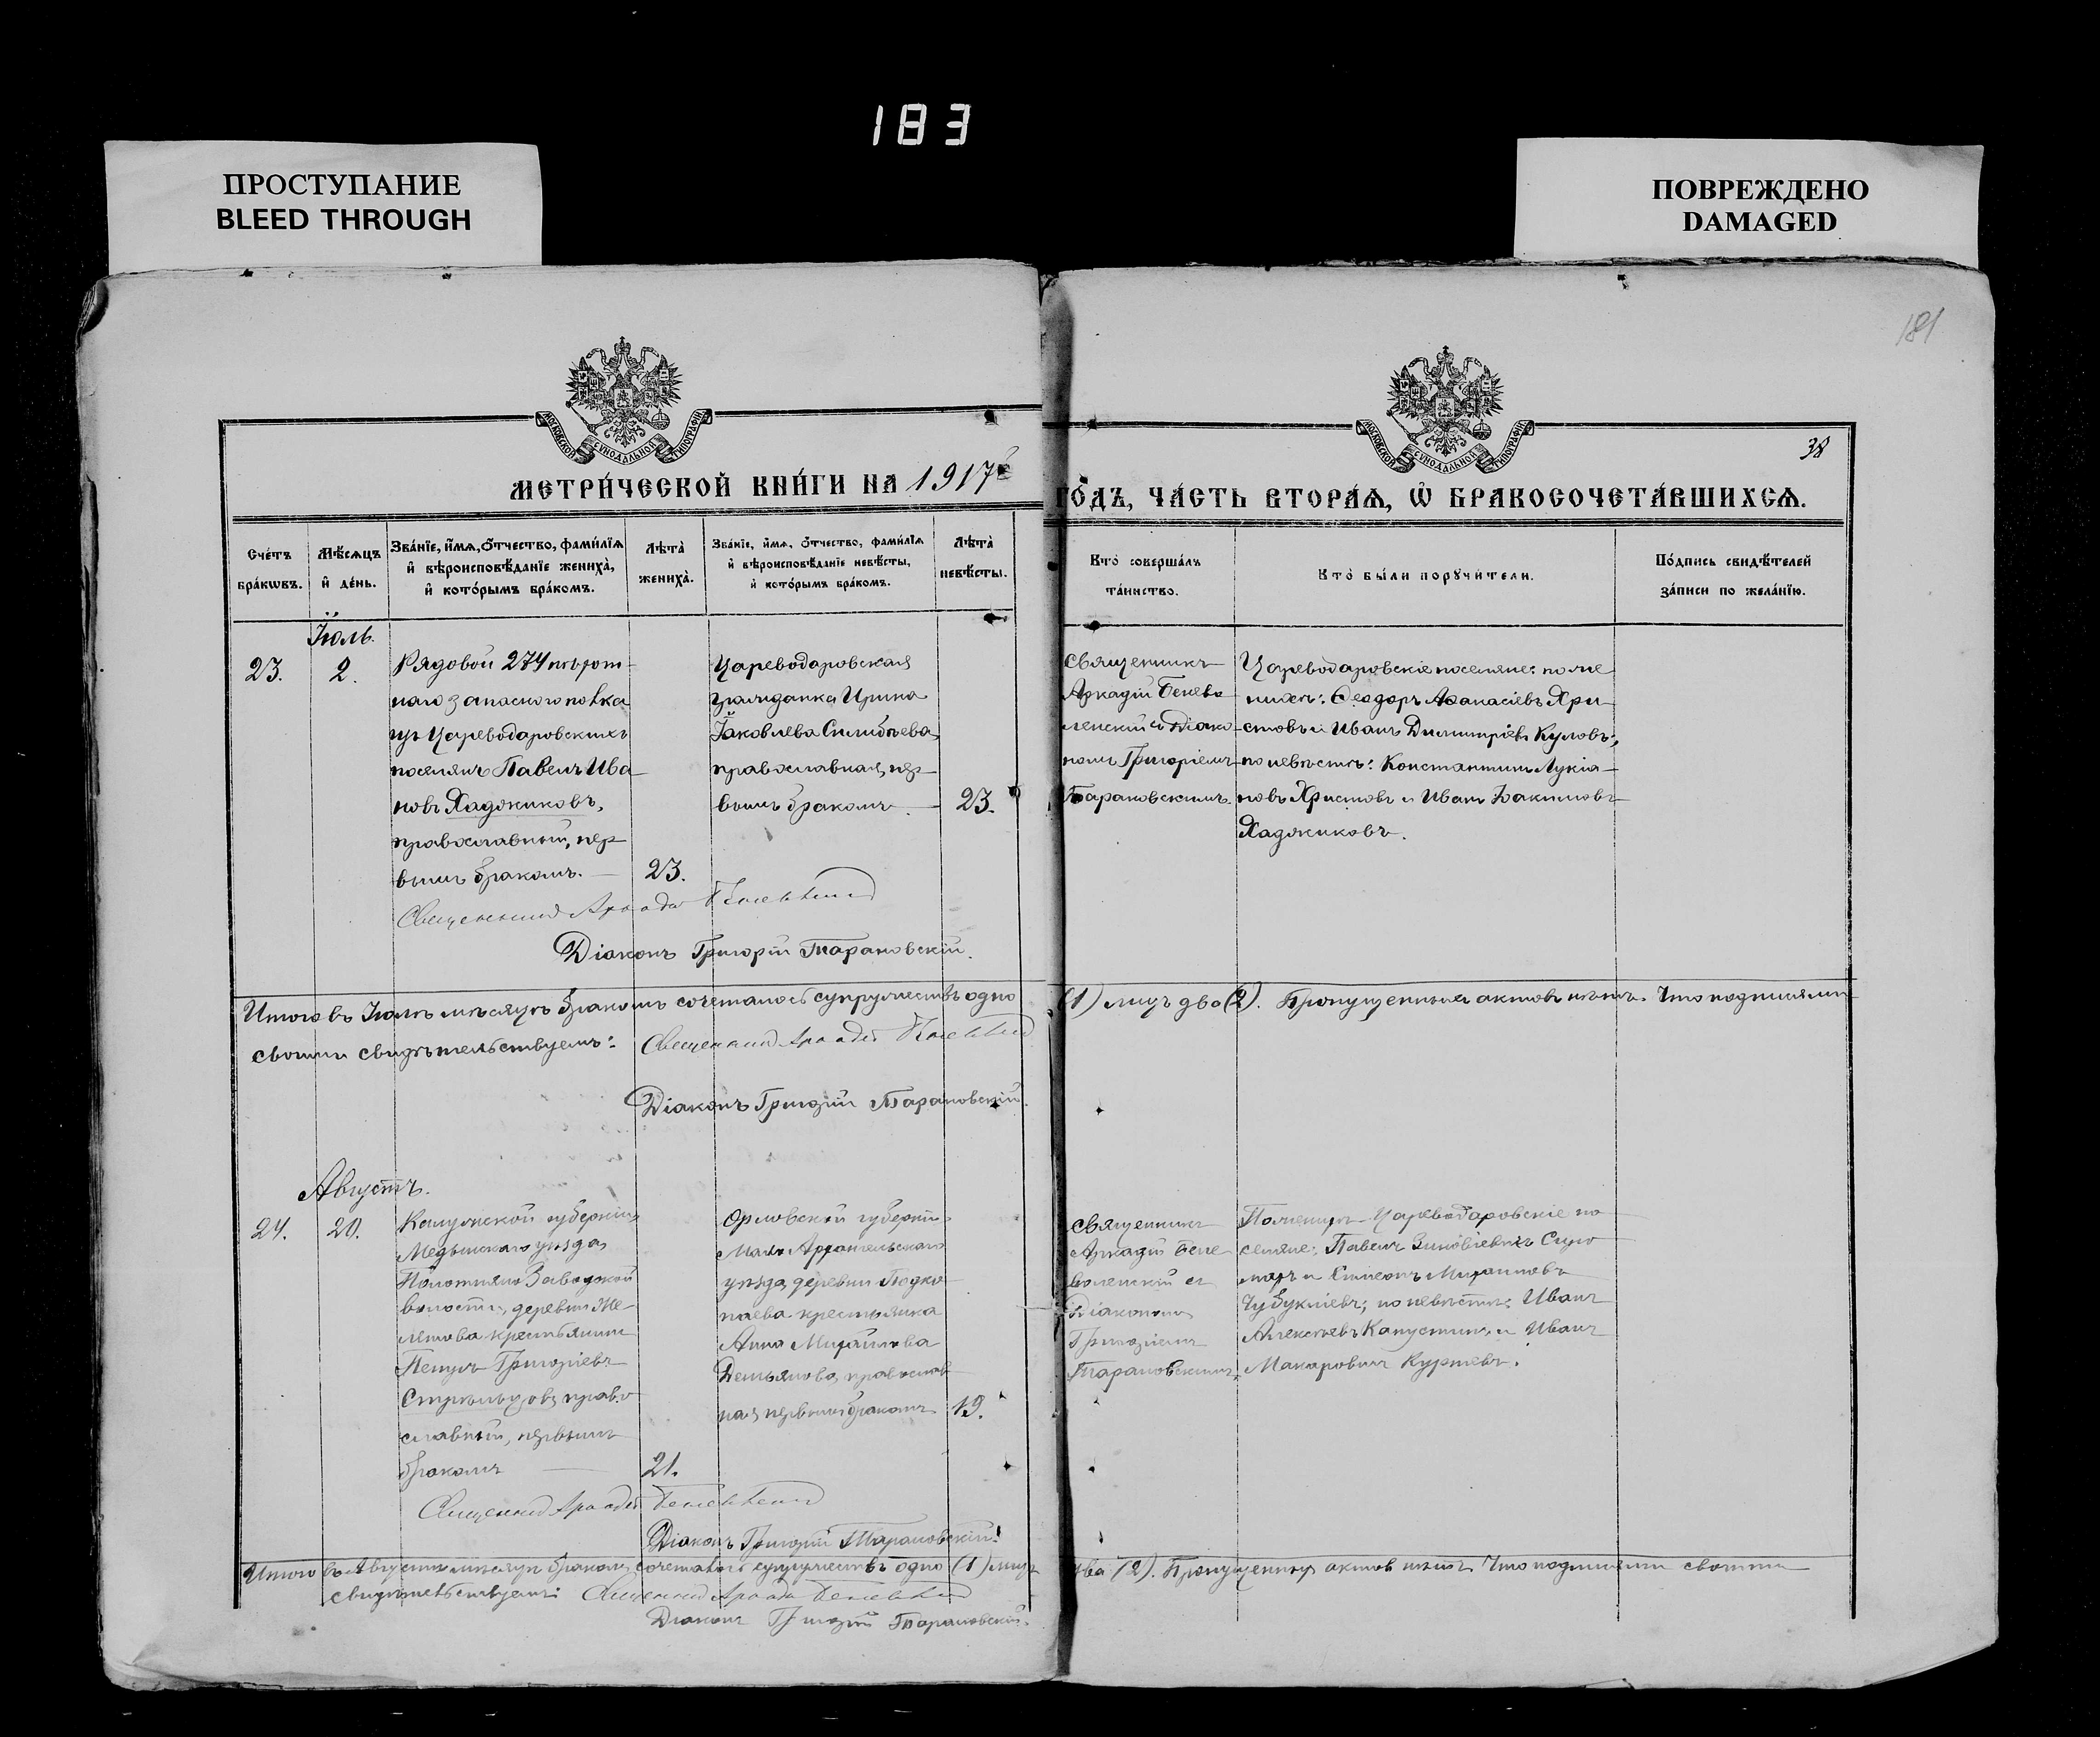 183
ПРОСТУПАНИЕ
BLEED THROUGH
ПОВРЕЖДЕНО
DAMAGED
181
МОСКОВСКОЙ СѴНОДАЛЬНОЙ ТИПОГРАФІИ
МОСКОВСКОЙ СѴНОДАЛЬНОЙ ТИПОГРАФІИ
38
МЕТРИ́ЧЕСКОЙ КНИ́ГИ НА 1917 ГО́ДЪ, ЧА́СТЬ ВТОРА́Ѧ, Ѡ҆ БРАКОСОЧЕТА́ВШИХСѦ.
Сче́тъ бра́кѡвъ.
Мѣ́сяцъ и҆ де́нь.
Зва́нїе, и҆́мѧ, ѻ҆́тчество, фами́лїѧ и҆ вѣроисповѣ́данїе жениха̀, и҆ кото́рымъ бра́комъ.
Лѣта̀ жениха̀.
Зва́нїе, и҆́мѧ, ѻ҆́тчество, фами́лїѧ и҆ вѣроисповѣ́данїе невѣ́сты, и҆ кото́рымъ бра́комъ.
Лѣта̀ невѣ́сты.
Кто̀ соверша́лъ та́инство.
Кто̀ бы́ли порꙋчи́тели.
По́дпись свидѣ́телей за́писи по жела́нїю.
Іюль.
23.
2.
Рядовой 274 пѣхот-
наго запаснаго полка
изъ Цареводаровскихъ
поселянъ Павелъ Ива-
новъ Хаджиковъ,
православный, пер-
вымъ бракомъ.
23.
Цареводаровская
гражданка Ирина
Іаковлева
православная, пер-
вымъ бракомъ.
23.
Священникъ
Аркадій Бенево-
ленскій съ Діако-
номъ Григоріемъ
Тарановскимъ.
Цареводаровскіе поселяне: по же-
нихѣ: Ѳеодоръ Аѳанасіевъ Хри-
стовъ и Иванъ Димитріевъ Куловъ;
по невѣстѣ: Константинъ Лукіа-
новъ Христовъ и Иванъ Іоакимовъ
Хаджиковъ.
Священникъ Аркадій Беневоленскій
Діаконъ Григорій Тарановскій.
Итого въ Іюлѣ мѣсяцѣ бракомъ сочеталось супружествъ одно (1) лицъ два (2). Пропущенныхъ актовъ нѣтъ. Что подписями
своими свидѣтельствуемъ: Священникъ Аркадій Беневоленскій
Діаконъ Григорій Тарановскій.
Августъ.
24.
20.
Калужской губерніи
Медынскаго уѣзда,
Полотняно Заводской
волости, деревни Же-
лтова крестьянинъ
Григоріевъ
Стрѣльцовъ, право-
славный, первымъ
бракомъ
21.
Орловской губерніи
Мало Архангельскаго
уѣзда, деревни Подко-
паева крестьянка
Анна Михайлова
Демьянова, православ-
ная, первымъ бракомъ
19.
Священникъ
Аркадій Бене-
воленскій съ
Діакономъ
Григоріемъ
Тарановскимъ.
По женихѣ Цареводаровскіе по-
селяне: Павелъ Зиновіевичъ
и Симеонъ
Чубукчіевъ; по невѣстѣ: Иванъ
Алексѣевъ Капустинъ, и Иванъ
Макаровичъ
Священникъ Аркадій Беневоленскій
Діаконъ Григорій Тарановскій.
Итого въ Августѣ мѣсяцѣ бракомъ сочеталось супружествъ одно (1) лицъ два (2). Пропущенныхъ актовъ нѣтъ. Что подписями своими
свидѣтельствуемъ: Священникъ Аркадій Беневоленскій
Діаконъ Григорій Тарановскій.